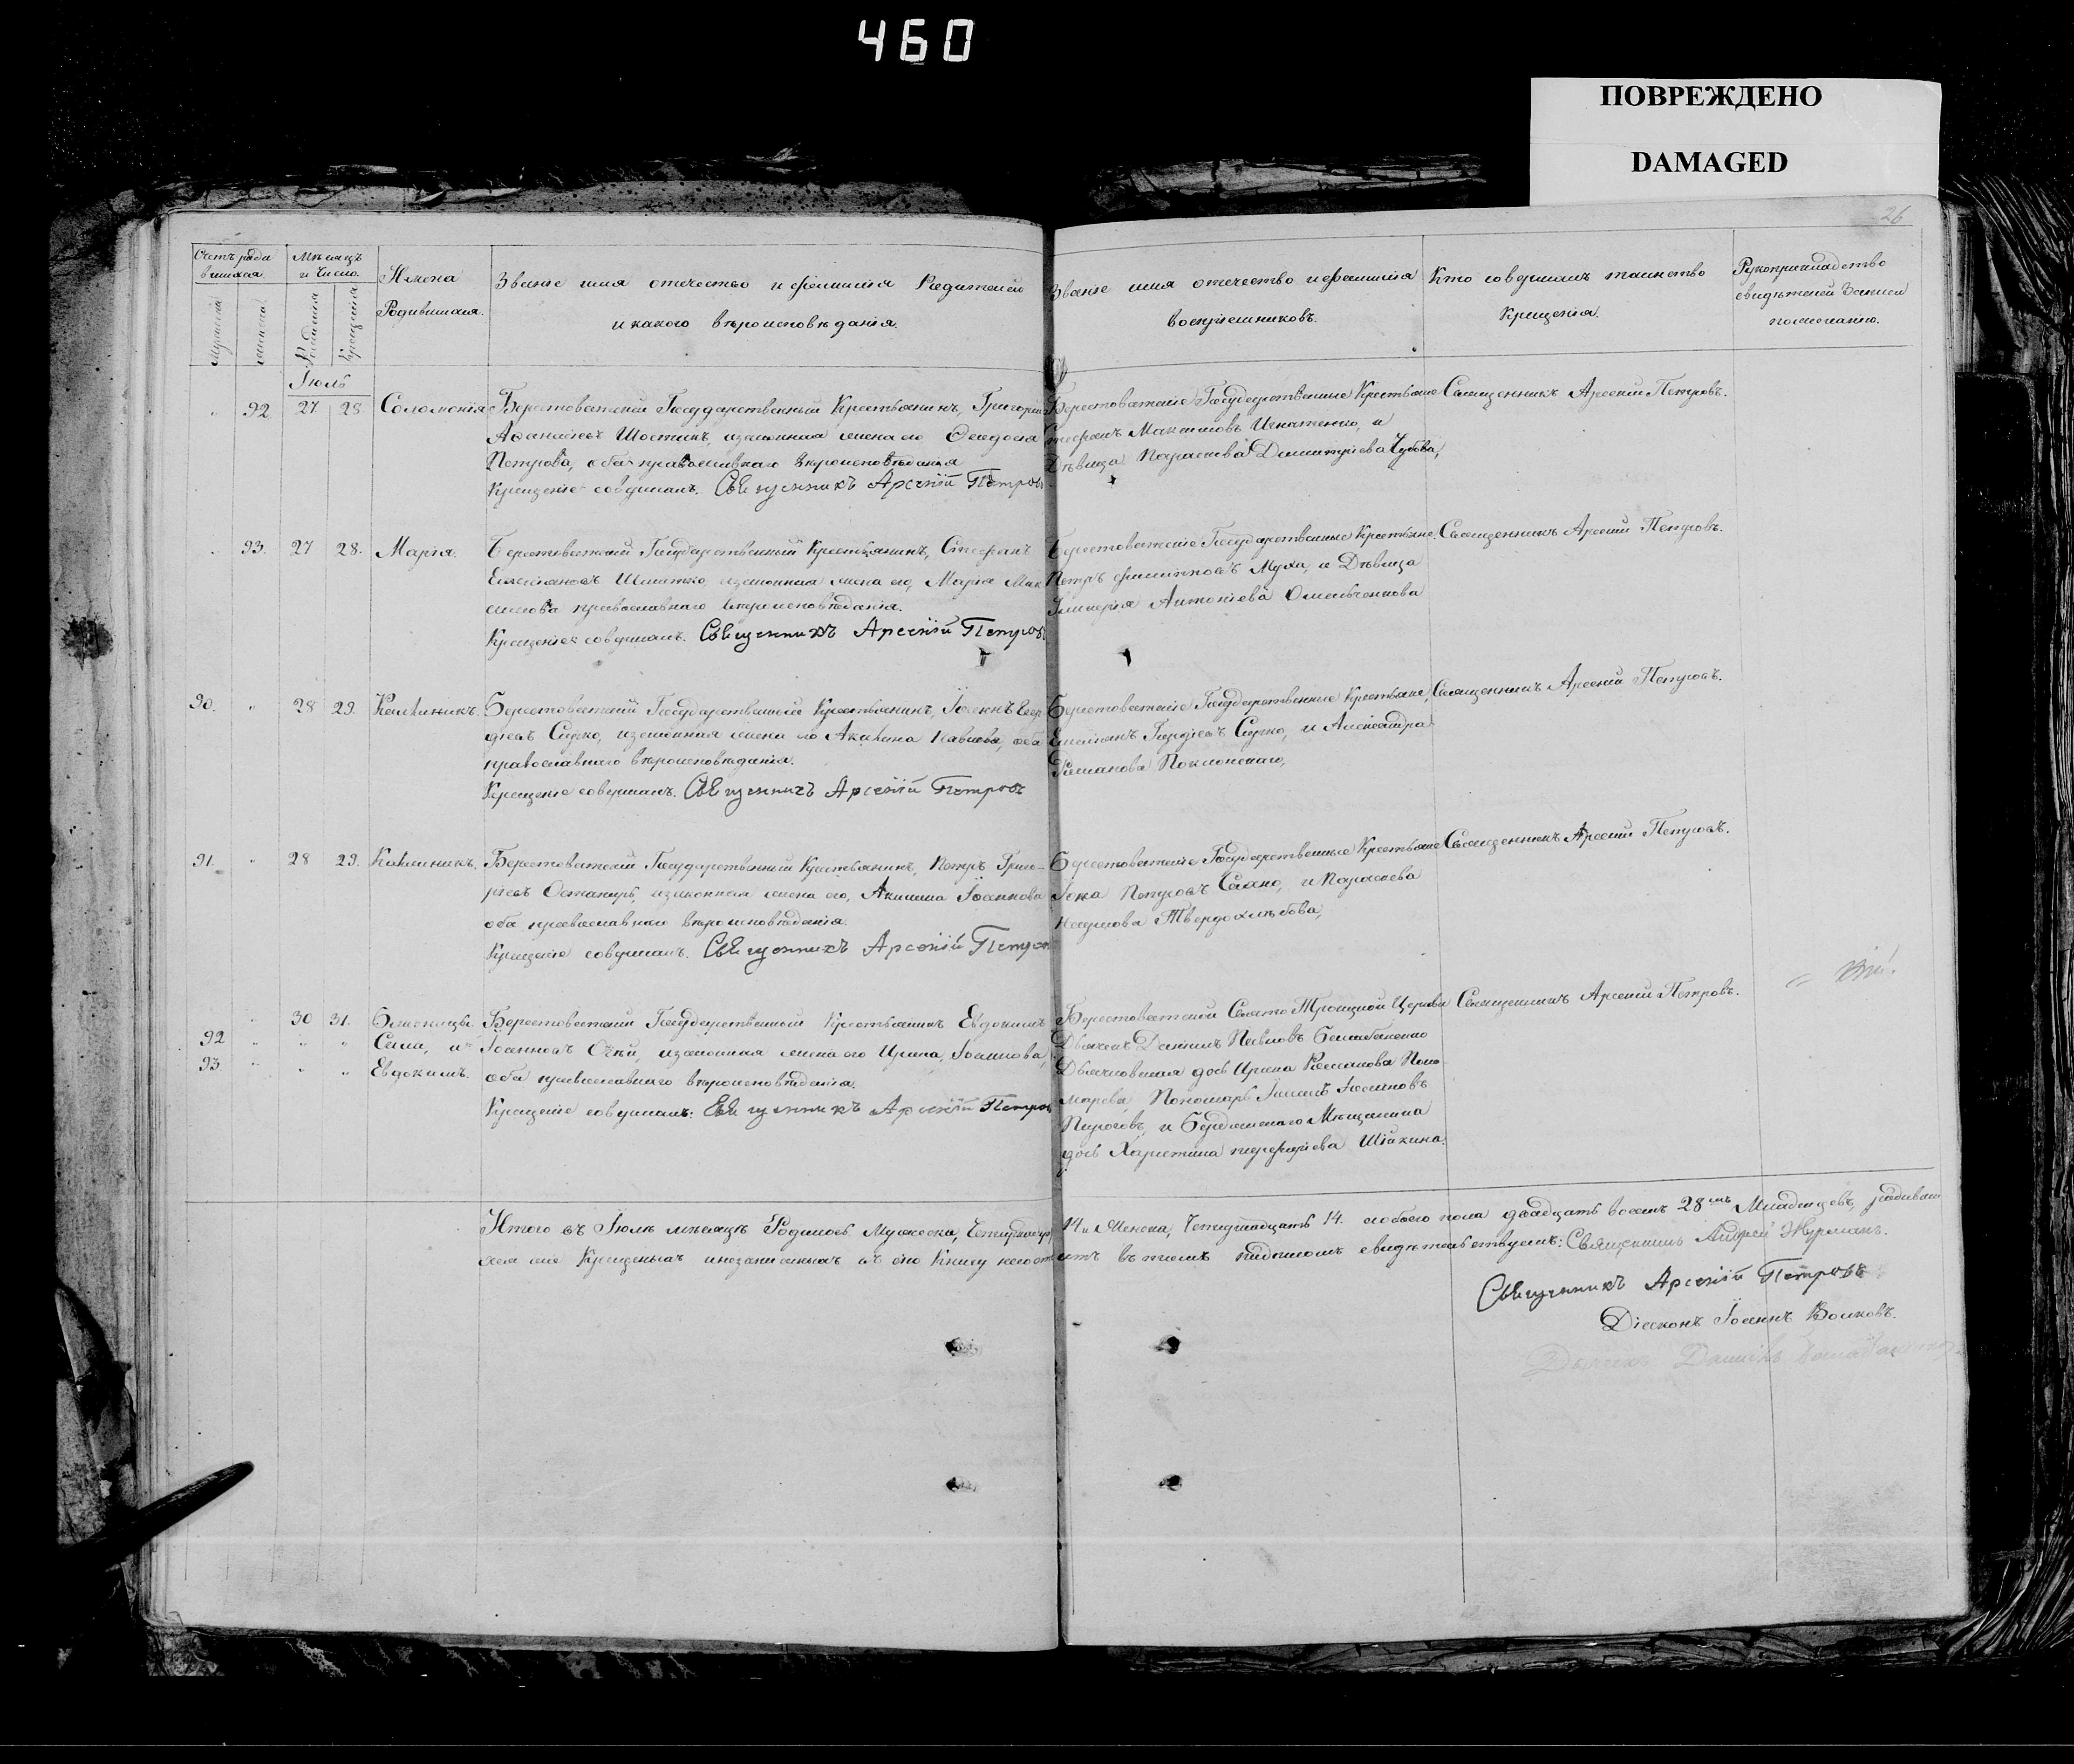 460
ПОВРЕЖДЕНО
DAMAGED
26
Счетъ роди
вшихся.
Мѣсяцъ
и Число.
Имена
Родившихся.
Званіе имя отечество и фамилія Родителей
и какого вѣроисповѣданія.
Званіе имя отечество и фамилія
воспріемниковъ.
Кто совершилъ таинство
Крещенія.
Рукоприкладство
свидѣтелей Записи
по желанію.
Мужеска
женска
Рожденія
Крещенія
Іюль
92 27 28 Соломонія
Берестоватскій Государственный Крестьянинъ, Григорій
Аѳанасіевъ Шостикъ, изаконная жена его Ѳеодосія
Петрова, оба православнаго вѣроисповѣданія
Крещеніе совершалъ. Священникъ Арсеній Петровъ
Берестоватскіе Государственные Крестьяне
Стефанъ Максимовъ Игнатенко, и
Дѣвица Параскева Димитріева Чубова,
Священникъ Арсеній Петровъ.
93. 27 28. Марія.
Берестоватскій Государственный Крестьянинъ, Стефанъ
Емельяновъ изаконная жена его, Марія Мак
симова православнаго вѣроисповѣданія.
Крещеніе совершалъ. Священникъ Арсеній Петровъ
Берестоватскіе Государственные Крестьяне.
Петръ Филиповъ Муха, и Дѣвица
Гликерія Антоніева Омельченкова
Священникъ Арсеній Петровъ.
90. 28 29. Каллиникъ.
Берестоватскій Государственный Крестьянинъ, Іоаннъ
Сирко, изаконная жена его Акилина Павлова, оба
православнаго вѣроисповѣданія.
Крещеніе совершалъ. Священникъ Арсеній Петровъ
Берестоватскіе Государственные Крестьяне,
Емельянъ Гордіевъ Сирко, и Александра
Романова Поклонскаго,
Священникъ Арсеній Петровъ.
91. 28 29. Каллиникъ.
Берестоватскій Государственный Крестьянинъ, Петръ Григо-
ріевъ изаконная жена его, Акилина Іоаннова
оба православнаго вѣроисповѣданія.
Крещеніе совершалъ. Священникъ Арсеній Петровъ
Берестоватскіе Государственные Крестьяне
Іона Петровъ и Параскева
Твердохлѣбова,
Священникъ Арсеній Петровъ.
30 31. Близнецы
92 Сила, и
93. Евдокимъ.
Берестоватскій Государственный Крестьянинъ Евдокимъ
Іоанновъ изаконная жена его Ирина Іоаннова,
оба православнаго вѣроисповѣданія.
Крещеніе совершалъ: Священникъ Арсеній Петровъ
Берестоватской Свято Троицкой Церкви
Дьячекъ Даніилъ Павловъ Балабаненко
Дьячковская дочь Ирина Поно
марева, Пономарь Іоанновъ
Пироговъ, и Бердянскаго Мѣщанина
дочь Харитина Порфиріева Шійкина.
Священникъ Арсеній Петровъ.
Итого въ Іюлѣ мѣсяцѣ Родилось Мужеска, Четырнадцать
14 и Женска, Четырнадцать 14. а обоего пола двадцать восемь 28мъ Младенцевъ,
Крещеныхъ инезаписанныхъ въ сію Книгу
въ чемъ подписомъ свидѣтельствуемъ: Священникъ Андрей Журманъ.
Священникъ Арсеній Петровъ
Діаконъ Іоаннъ Волковъ.
Дьячекъ Даніилъ Балабаненко